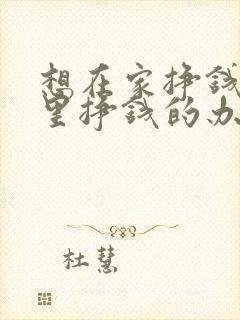 想在家挣钱
里挣钱的办
杜慧